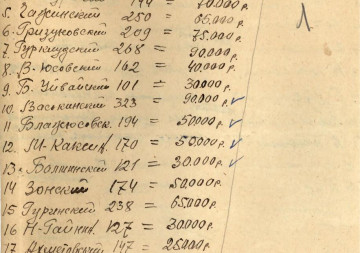 144 = 70.000 р.
5. Гажинский 250 = 65.000 р.
6. Гризуновский 209 = 75.000 р.
7. Гуркиудский 268 = 90.000 р.
8. В-Юсовский 162 = 40.000 р.
9. Б. Уйвайский 101 = 30000 р.
10. Засокинский 323 = 90.000 р.
11 Влажюсовск. 194 = 50000 р.
12. М-Каксин. 170 = 50000 р.
13. Болтинский 121 = 30.000 р.
14 Зонский 174 = 50.000 р.
15 Гургинский 238 = 65.000 р.
16 Н-Гайнин. 127 = 30.000 р.
17 Ахметовский 147 = 25.000 р.
1